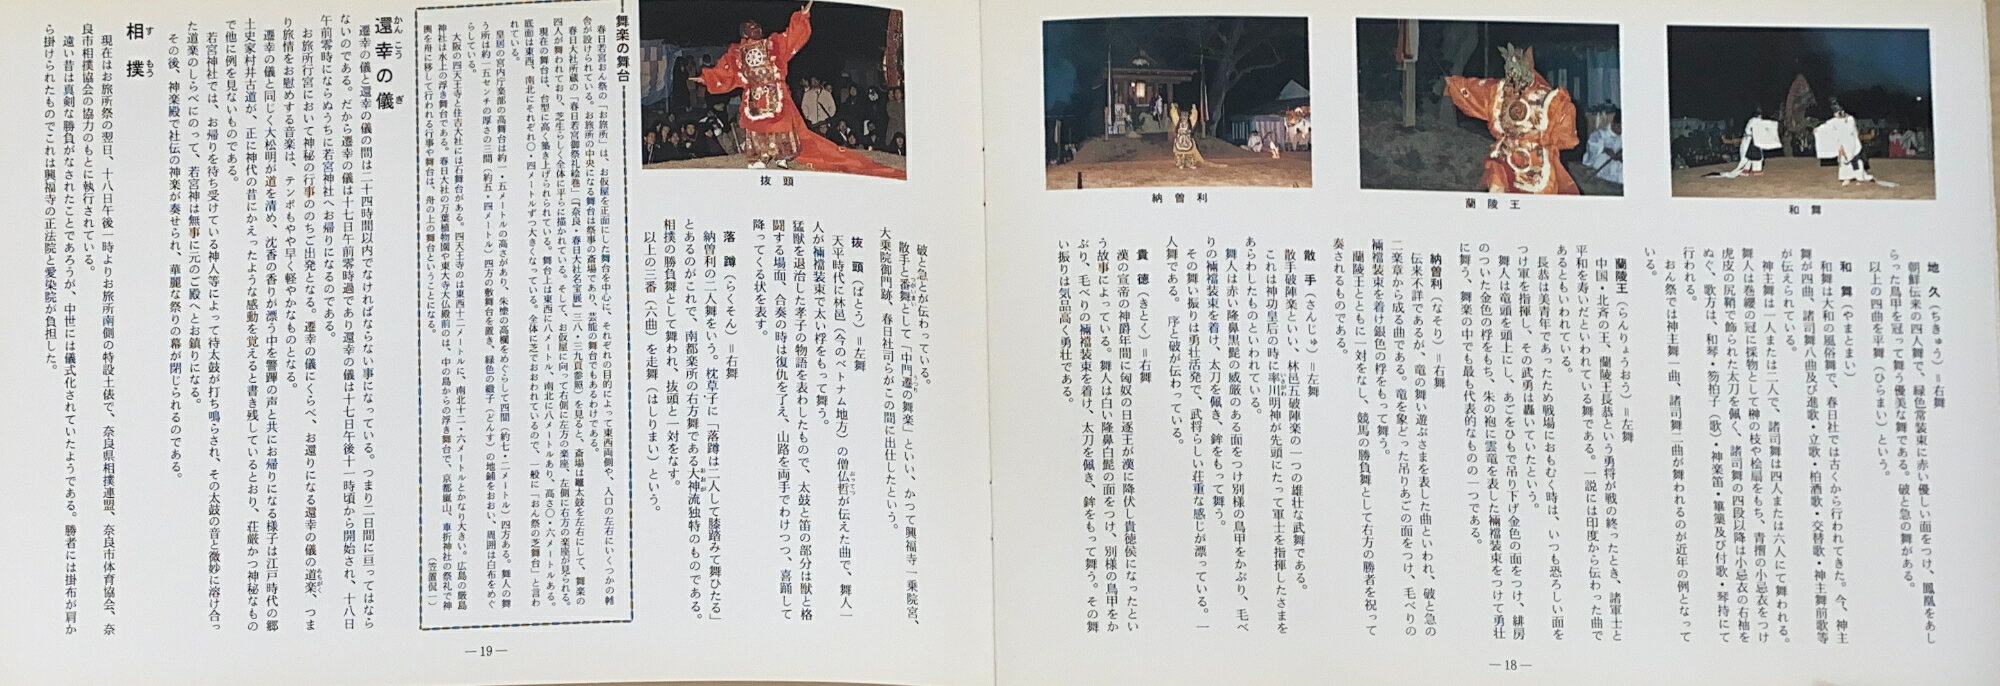 和舞
蘭陵王
納曽利
地久(ちきゅう)=右舞
朝鮮伝来の四人舞で、緑色常装束に赤い優しい面をつけ、鳳凰をあし
らった鳥甲を冠って舞う優美な舞である。破と急の舞がある。
以上の四曲を平舞(ひらまい)という。
和舞(やまとまい)
和舞は大和の風俗舞で、春日社では古くから行われてきた。今、神主
舞が四曲、諸司舞八曲及び進歌・立歌・柏酒歌・交替歌・神主舞前歌等
がが伝えられている。
神主舞は一人または二人で、諸司舞は四人または六人にて舞われる。
舞人は巻纓の冠に採物として榊の枝や桧扇をもち、青摺の小忌衣をつけ
虎皮の尻鞘で飾られた太刀を佩く、諸司舞の四段以降は小忌衣の右袖を
ぬぐ、歌方は、和琴・笏拍子(歌)・神楽笛・篳篥及び付歌・琴持にて
行われる。
おん祭では神主舞一曲、諸司舞二曲が舞われるのが近年の例となって
いる。
蘭陵王(らんりょうおう)=左舞
中国・北斉の王、蘭陵王長恭という勇将が戦の終ったとき、諸軍士と
平和を寿いだといわれている舞である。一説には印度から伝わった曲で
あるともいわれている。
長恭は美青年であったため戦場におもむく時は、いつも恐ろしい面を
つけ軍を指揮し、その武勇は轟いていたという。
舞人は竜頭を頭上にし、あごをひもで吊り下げ金色の面をつけ、緋房
のついた金色の桴をもち、朱の袍に雲竜を表した裲襠装束をつけて勇壮
に舞う、舞楽の中でも最も代表的なものの一つである。
納曽利(なそり)=右舞
伝来不詳であるが、竜の舞い遊ぶさまを表した曲といわれ、破と急の
二楽章から成る曲である。竜を象どった吊りあごの面をつけ、毛べりの
裲襠装束を着け銀色の桴をもって舞う。
蘭陵王とともに一対をなし、競馬の勝負舞として右方の勝者を祝って
奏されるものである。
散手(さんじゅ)=左舞
散手破陣楽といい、林邑五破陣楽の一つの雄壮な武舞である。
これは神功皇后の時に率川明神が先頭にたって軍士を指揮したさまを
あらわしたものといわれている。
舞人は赤い隆鼻黒髭の威厳のある面をつけ別様の鳥甲をかぶり、毛べ
りの裲襠装束を着け、太刀を佩き、鉾をもって舞う。
その舞い振りは勇壮活発で、武将らしい荘重な感じが漂っている。一
人舞である。序と破が伝わっている。
貴徳(きとく)=右舞
漢の宣帝の神爵年間に匈奴の日逐王が漢に降伏し貴徳侯になったとい
う故事によっている。舞人は白い隆鼻白髭の面をつけ、別様の鳥甲をか
ぶり、毛べりの裲襠装束を着け、太刀を佩き、鉾をもって舞う。その舞
い振りは気品高く勇壮である。
—18—
抜頭
破と急とが伝わっている。
散手と番舞として「中門遷の舞楽」といい、かつて興福寺一乗院宮、
大乗院御門跡、春日社司らがこの間に出仕したという。
抜頭(ばとう)=左舞
天平時代に林邑(今のベトナム地方)の僧仏哲が伝えた曲で、舞人一
人が裲襠装束で太い桴をもって舞う。
猛獣を退治した孝子の物語を表わしたもので、太鼓と笛の部分は獣と格
闘する場面、合奏の時は復仇を了え、山路を両手でわけつつ、喜踊して
降ってくる状を表す。
落蹲(らくそん)=右舞
納曽利の二人舞をいう。枕草子に「落蹲は二人して膝踏みて舞ひたる」
とあるのがこれで、南都楽所の右方舞である大神流独特のものである。
相撲の勝負舞として舞われ、抜頭と一対をなす。
以上の三番(六曲)を走舞(はしりまい)という。
舞楽の舞台
春日若宮おん祭の「お旅所」は、お仮屋を正面にした舞台を中心に、それぞれの目的によって東西両側や、入口の左右にいくつかの幄
舎が設けられている。お旅所の中央になる舞台は祭事の斎場であり、芸能の舞台でもあるわけである。
春日大社所蔵の「春日若宮御祭礼絵巻」(『奈良・春日大社名宝展』三八・三九頁参照)を見ると、斎場は鼉太鼓を左右にして、舞楽の
四人が舞われており、芝生らしく全体に平らに描かれている。そして、お仮屋に向って右側に左方の楽座、左側に右方の楽座が見られる。
現在の舞台は、台型に高く築き上げられられている。舞台上は東西に八メートル、南北に八メートルあり、高さ〇・六メートルある。
底面は東西、南北にそれぞれ〇・四メートルずつ大きくなっている。全体に芝でおおわれているので、一般に「おん祭の芝舞台」と言わ
れている。
皇居の宮内庁楽部の高舞台は約一・五メートルの高さがあり、朱塗の高欄をめぐらして四間(約七・二メートル)四方ある。舞人の舞
う所は約一五センチの厚さの三間(約五・四メートル)四方の敷舞台を置き、緑色の緞子(どんす)の地鋪をおおい、周囲は白布をめぐ
らしている。
大阪の四天王寺と住吉大社には石舞台がある。四天王寺は東西十二メートルに、南北十二・六メートルとかなり大きい。広島の厳島
神社は水上の浮き舞台である。春日大社の万葉植物園や東大寺大仏殿前は、中の島からの浮き舞台で、京都嵐山、車折神社の祭礼で神
輿を舟に移して行われる行事や舞台は、舟の上の舞台ということになる。
(笠置侃一)
還幸の儀
かんこう ぎ
遷幸の儀と還幸の儀の間は二十四時間以内でなければならない事になっている。つまり二日間に亘ってはなら
ないのである。だから遷幸の儀は十七日午前零時過であり還幸の儀は十七日午後十一時頃から開始され、十八日
午前零時にならぬうちに若宮神社へお帰りになるのである。
お旅所行宮において神秘の行事ののちご出発となる。遷幸の儀にくらべ、お還りになる還幸の儀の道楽、つま
り旅情をお慰めする音楽は、テンポもやや早く軽やかなものとなる。
遷幸の儀と同じく大松明が道を清め、沈香の香りが漂う中を警蹕の声と共にお帰りになる様子は江戸時代の郷
土史家村井古道が、正に神代の昔にかえったような感動を覚えると書き残しているとおり、荘厳かつ神秘なもの
で他に例を見ないものである。
若宮神社では、お帰りを待ち受けている神人等によって待太鼓が打ち鳴らされ、その太鼓の音と微妙に溶け合っ
た道楽のしらべにのって、若宮神は無事に元のご殿へとお鎮りになる。
その後、神楽殿で社伝の神楽が奏せられ、華麗な祭りの幕が閉じられるのである。
相撲
すもう
現在はお旅所祭の翌日、十八日午後一時よりお旅所南側の特設土俵で、奈良県相撲連盟、奈良市体育協会、奈
良市相撲協会の協力のもとに執行されている。
遠い昔は真剣な勝負がなされたことであろうが、中世には儀式化されていたようである。勝者には掛布が肩か
ら掛けられたものでこれは興福寺の正法院と愛染院が負担した。
—19—